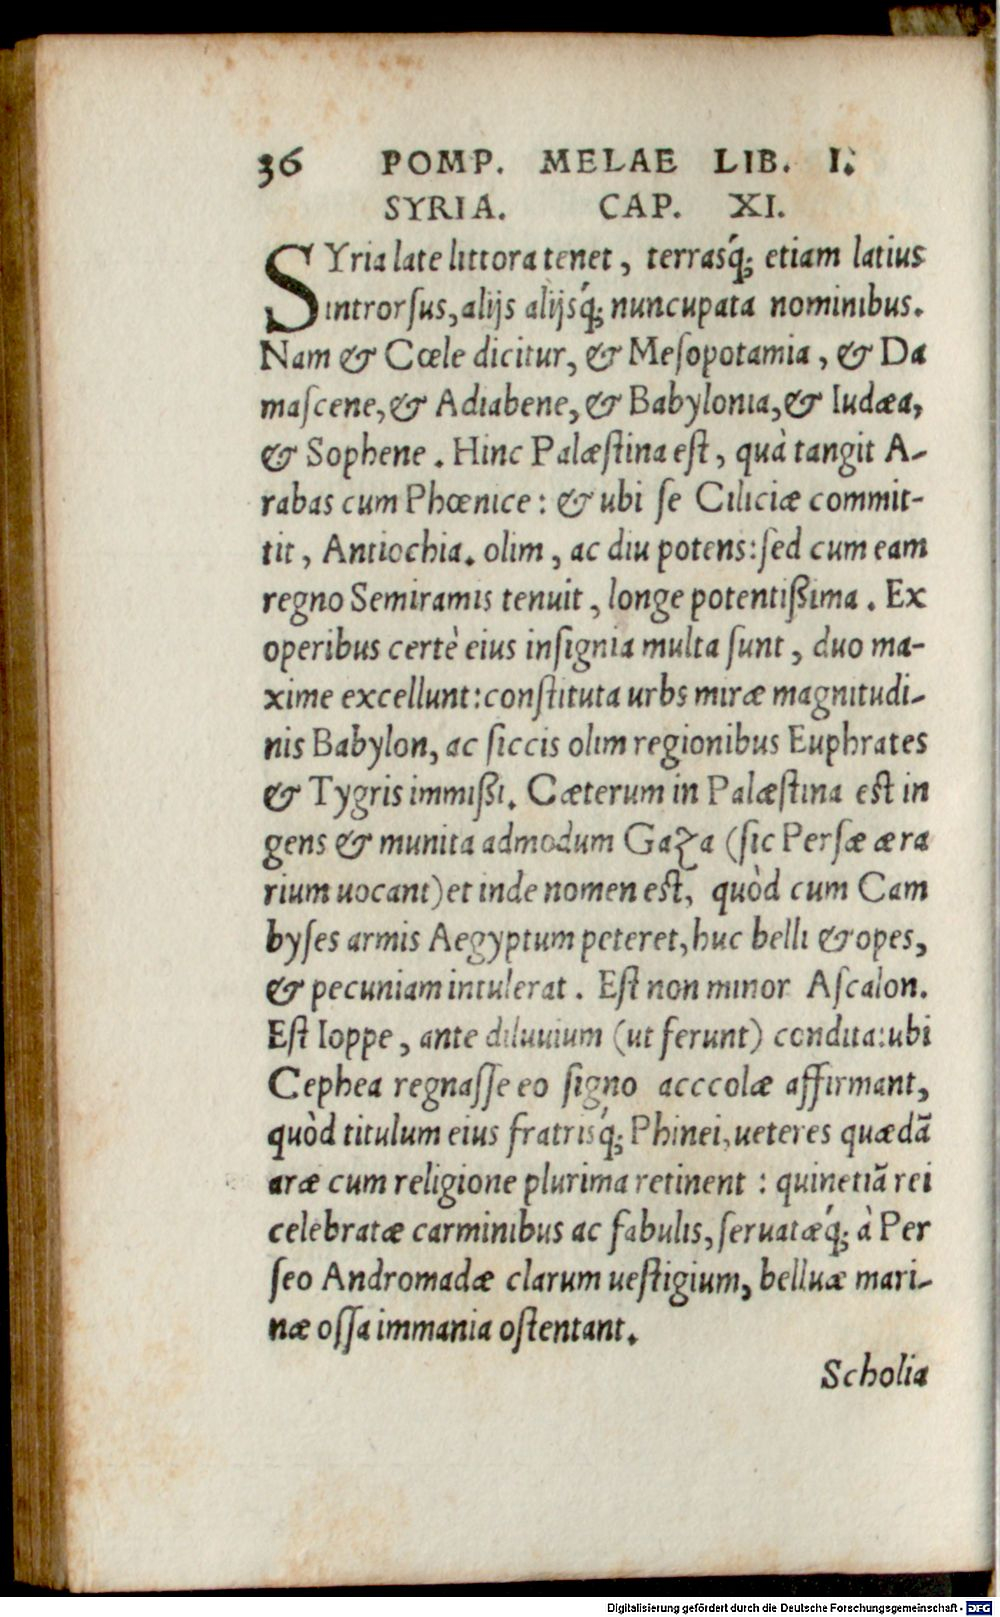 36 POMP. MELAE LIB. I.
SYRIA. CAP. XI.
SYria late littora tenet, terrasq́; etiam latius
introrſus, alijs alijsq́; nuncupata nominibus.
Nam & Cœle dicitur, & Meſopotamia, & Da
maſcene, & Adiabene, & Babylonia, & Iudæa,
& Sophene. Hinc Palæſtina eſt, quà tangit A-
rabas cum Phœnice: & ubi ſe Ciliciæ commit-
tit, Antiochia. olim, ac diu potens: ſed cum eam
regno Semiramis tenuit, longe potentißima. Ex
operibus certè eius inſignia multa ſunt, duo ma-
xime excellunt: conſtituta urbs miræ magnitudi-
nis Babylon, ac ſiccis olim regionibus Euphrates
& Tygris immißi. Cæterum in Palæſtina eſt in
gens & munita admodum Gaza (ſic Perſæ æra
rium uocant) et inde nomen eſt, quòd cum Cam
byſes armis Aegyptum peteret, huc belli & opes,
& pecuniam intulerat. Eſt non minor Aſcalon.
Eſt Ioppe, ante diluuium (ut ferunt) condita: ubi
Cephea regnaſſe eo ſigno acccolæ affirmant,
quòd titulum eius fratrisq́; Phinei, ueteres quædã
aræ cum religione plurima retinent: quinetiã rei
celebratæ carminibus ac fabulis, ſeruatæq́; à Per
ſeo Andromadæ clarum ueſtigium, belluæ mari-
næ oſſa immania oſtentant.
Scholia
Digitalisierung gefördert durch die Deutsche Forschungsgemeinschaft - DFG